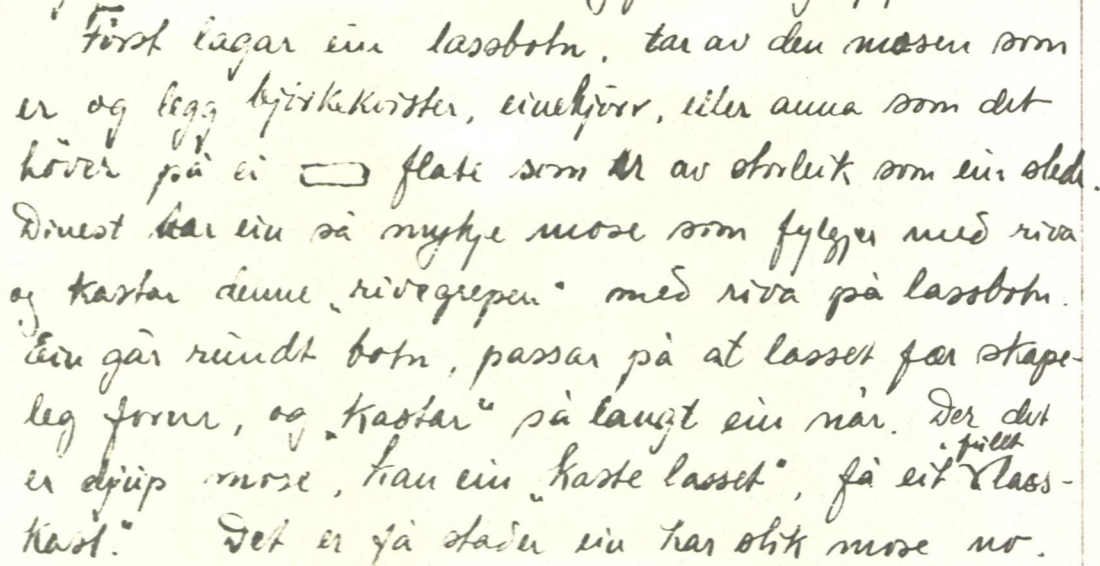 Först lagar ein lassbotn, tar av den mosen som
er og legg björkekvister, einekjörr, eller anna som det
höver på ei ▭ flate som er av storleik som ein slede.
Dinest tar ein så mykje mose som fylgjer med riva
og kastar denne „rivegrepen“ med riva på lassbotn.
Ein går rundt botn, passar på at lasset fær skape-
leg form, og „kastar“ så langt ein når. Der det
er djup mose, kan ein „kaste lasset“, få eit „fullt lass-
kast.“ Det er få stader ein har slik mose no.